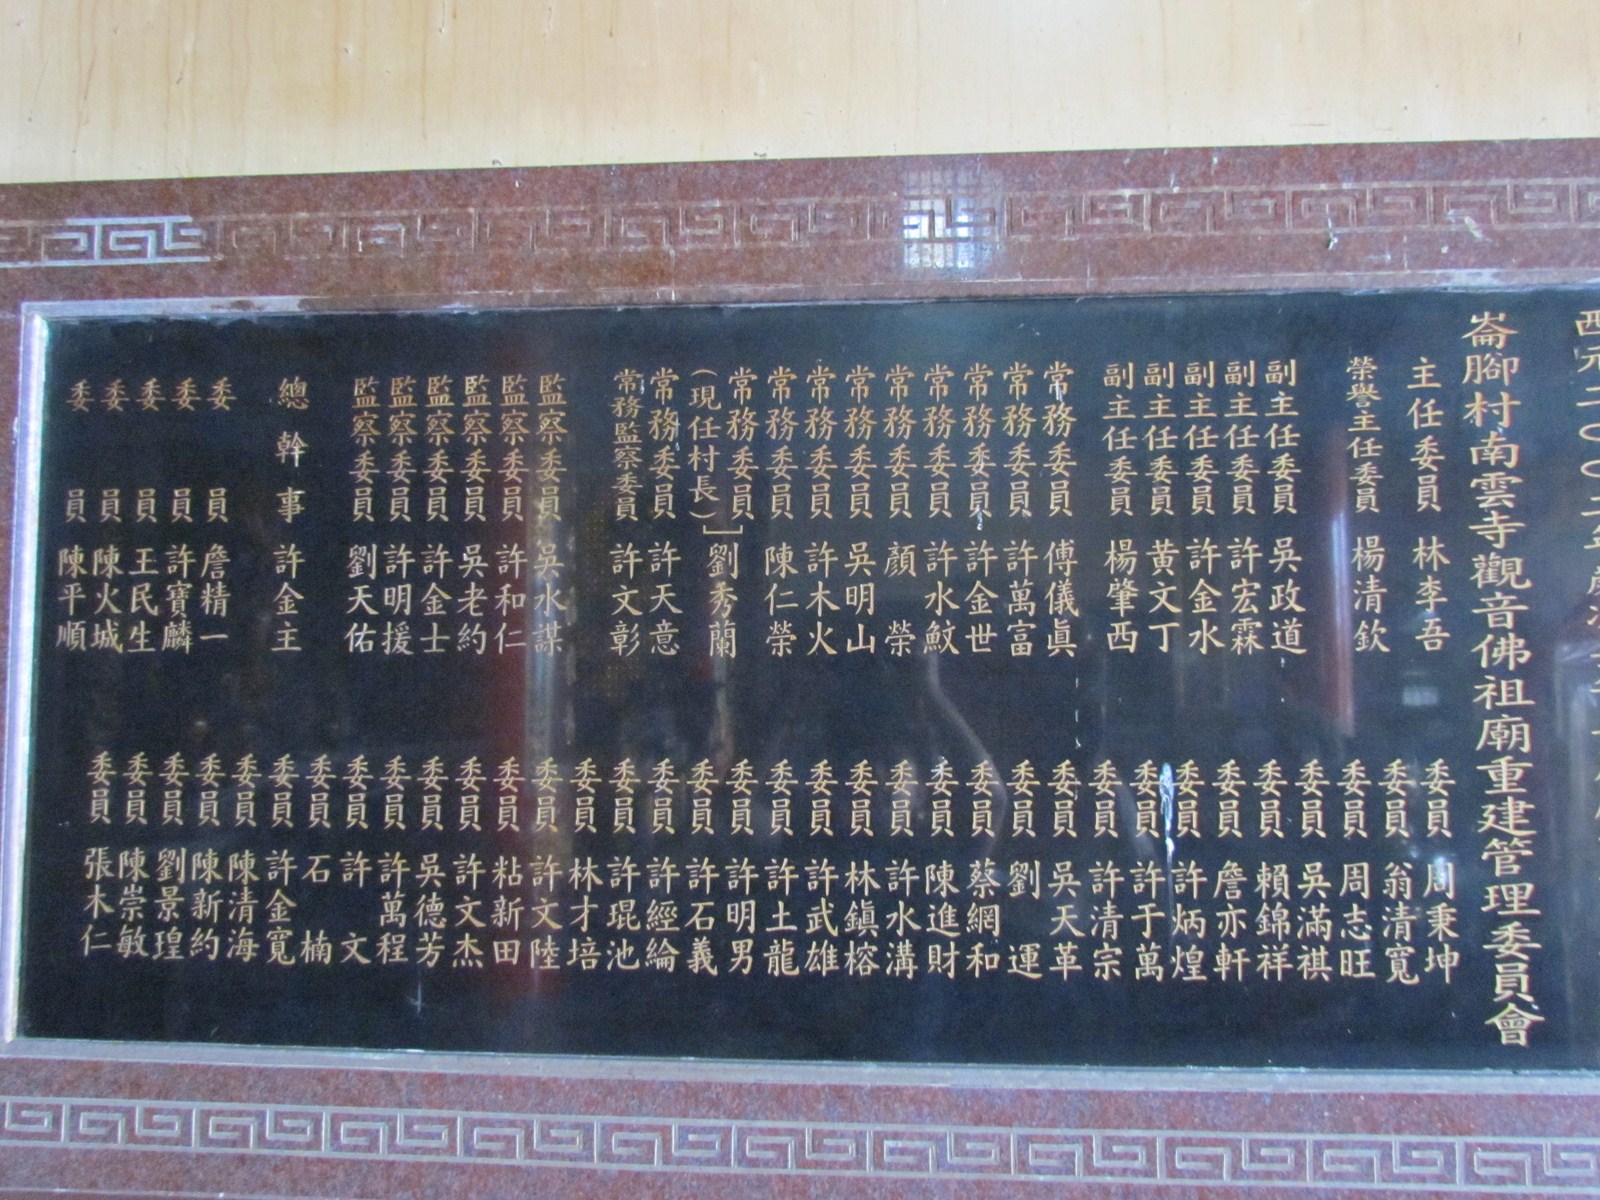 西元二〇〇二年歲次
崙腳村南雲寺觀音佛祖廟重建管理委員會
主任委員 林李吾
榮譽主任委員 楊清欽
副主任委員 吳政道
副主任委員 許宏霖
副主任委員 許金水
副主任委員 黃文丁
副主任委員 楊肇西
常務委員 傅儀眞
常務委員 許萬富
常務委員 許金世
常務委員 許水鮫
常務委員 顏榮
常務委員 吳明山
常務委員 許木火
常務委員 陳仁榮
常務委員
(現任村長)】劉秀蘭
常務委員 許天意
常務監察委員 許文彰
監察委員 吳水謀
監察委員 許和仁
監察委員 吳老約
監察委員 許金士
監察委員 許明援
監察委員 劉天佑
總幹事 許金主
委員 詹精一
委員 許寶麟
委員 王民生
委員 陳火城
委員 陳平順
委員 周秉坤
委員 翁清寬
委員 周志旺
委員 吳滿祺
委員 賴錦祥
委員 詹亦軒
委員 許炳煌
委員 許于萬
委員 許清宗
委員 吳天革
委員 劉運
委員 蔡網和
委員 陳進財
委員 許水溝
委員 林鎭榕
委員 許武雄
委員 許土龍
委員 許明男
委員 許石義
委員 許經綸
委員 許琨池
委員 林才培
委員 許文陸
委員 粘新田
委員 許文杰
委員 吳德芳
委員 許萬程
委員 許文
委員 石楠
委員 許金寬
委員 陳清海
委員 陳新約
委員 劉景瑝
委員 陳崇敏
委員 張木仁